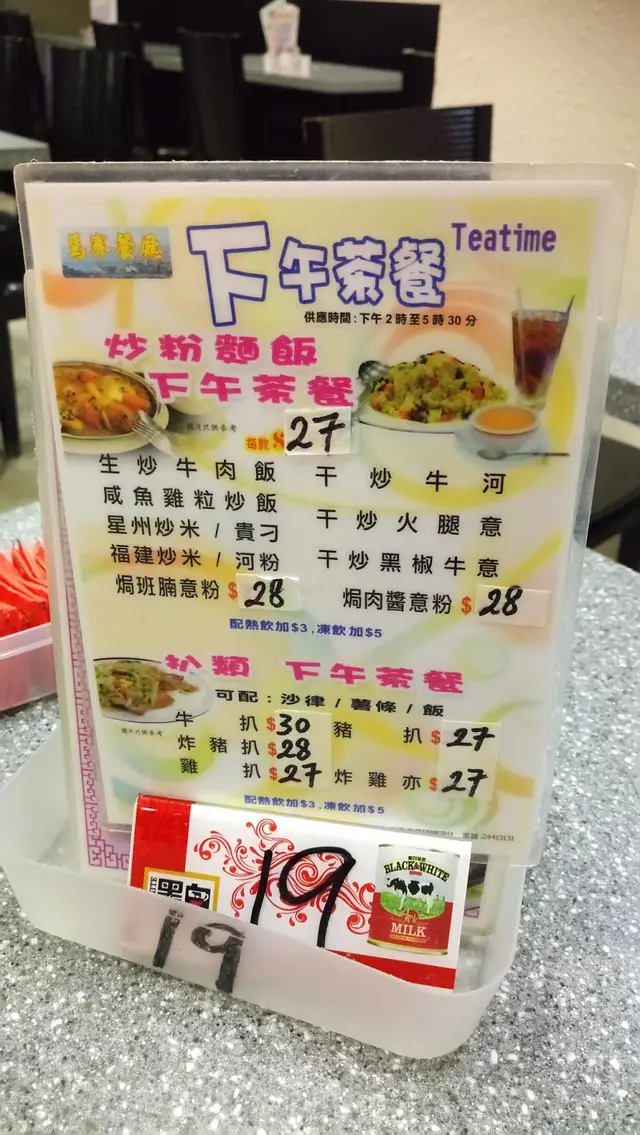 馬賽餐廳
下午茶餐 Teatime
供應時間：下午2時至5時30分
炒粉麵飯
下午茶餐
圖片只供參考
每款$27
生炒牛肉飯 干炒牛河
咸魚雞粒炒飯
干炒火腿意
星州炒米/貴刁
福建炒米/河粉 干炒黑椒牛意
焗班腩意粉$28 焗肉醬意粉$28
配熱飲加$3,凍飲加$5
扒類 下午茶餐
可配：沙律/薯條/飯
圖片只供參考
牛扒$30 豬扒$27
炸豬扒$28
雞扒$27 炸雞亦$27
配熱飲加$3,凍飲加$5
電話:24413131
黑白
19
BLACK&WHITE
MILK
19